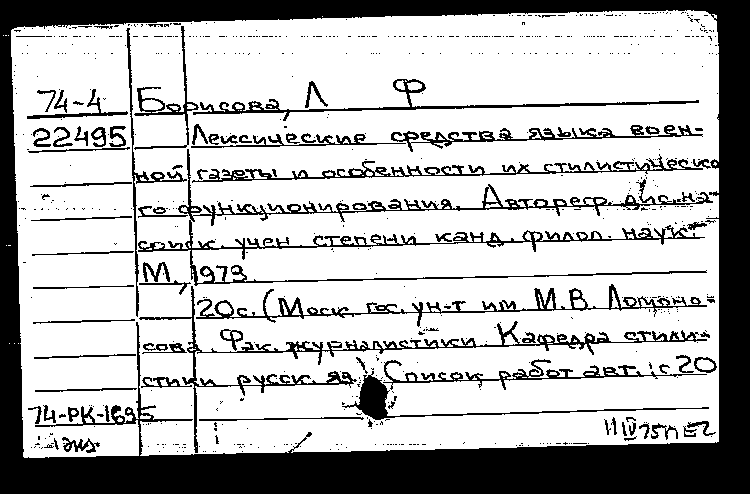 74-4 Борисова, Л Ф
22495 Лексические средства языка воен-
ной газеты и особенности их стилистическо
го функционирования. Автореф. дис. на
соиск. учен. степени канд. филол. наук.
М., 1973.
20с. (Моск. гос. ун-т им. М.В. Ломоно-
сова. Фак. журналистики. Кафедра стили-
стики русск. яз) Список работ авт.: с 20
74-РК-1695
1 экз.